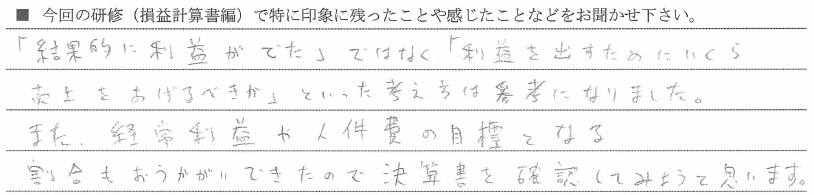 ■ 今回の研修（損益計算書編）で特に印象に残ったことや感じたことなどをお聞かせ下さい。
「結果的に利益がでた」ではなく「利益を出すためにいくら
売上をあげるべきか」といった考え方は参考になりました。
また、経常利益や人件費の目標となる
割合もおうかがいできたので決算書を確認してみようて思います。